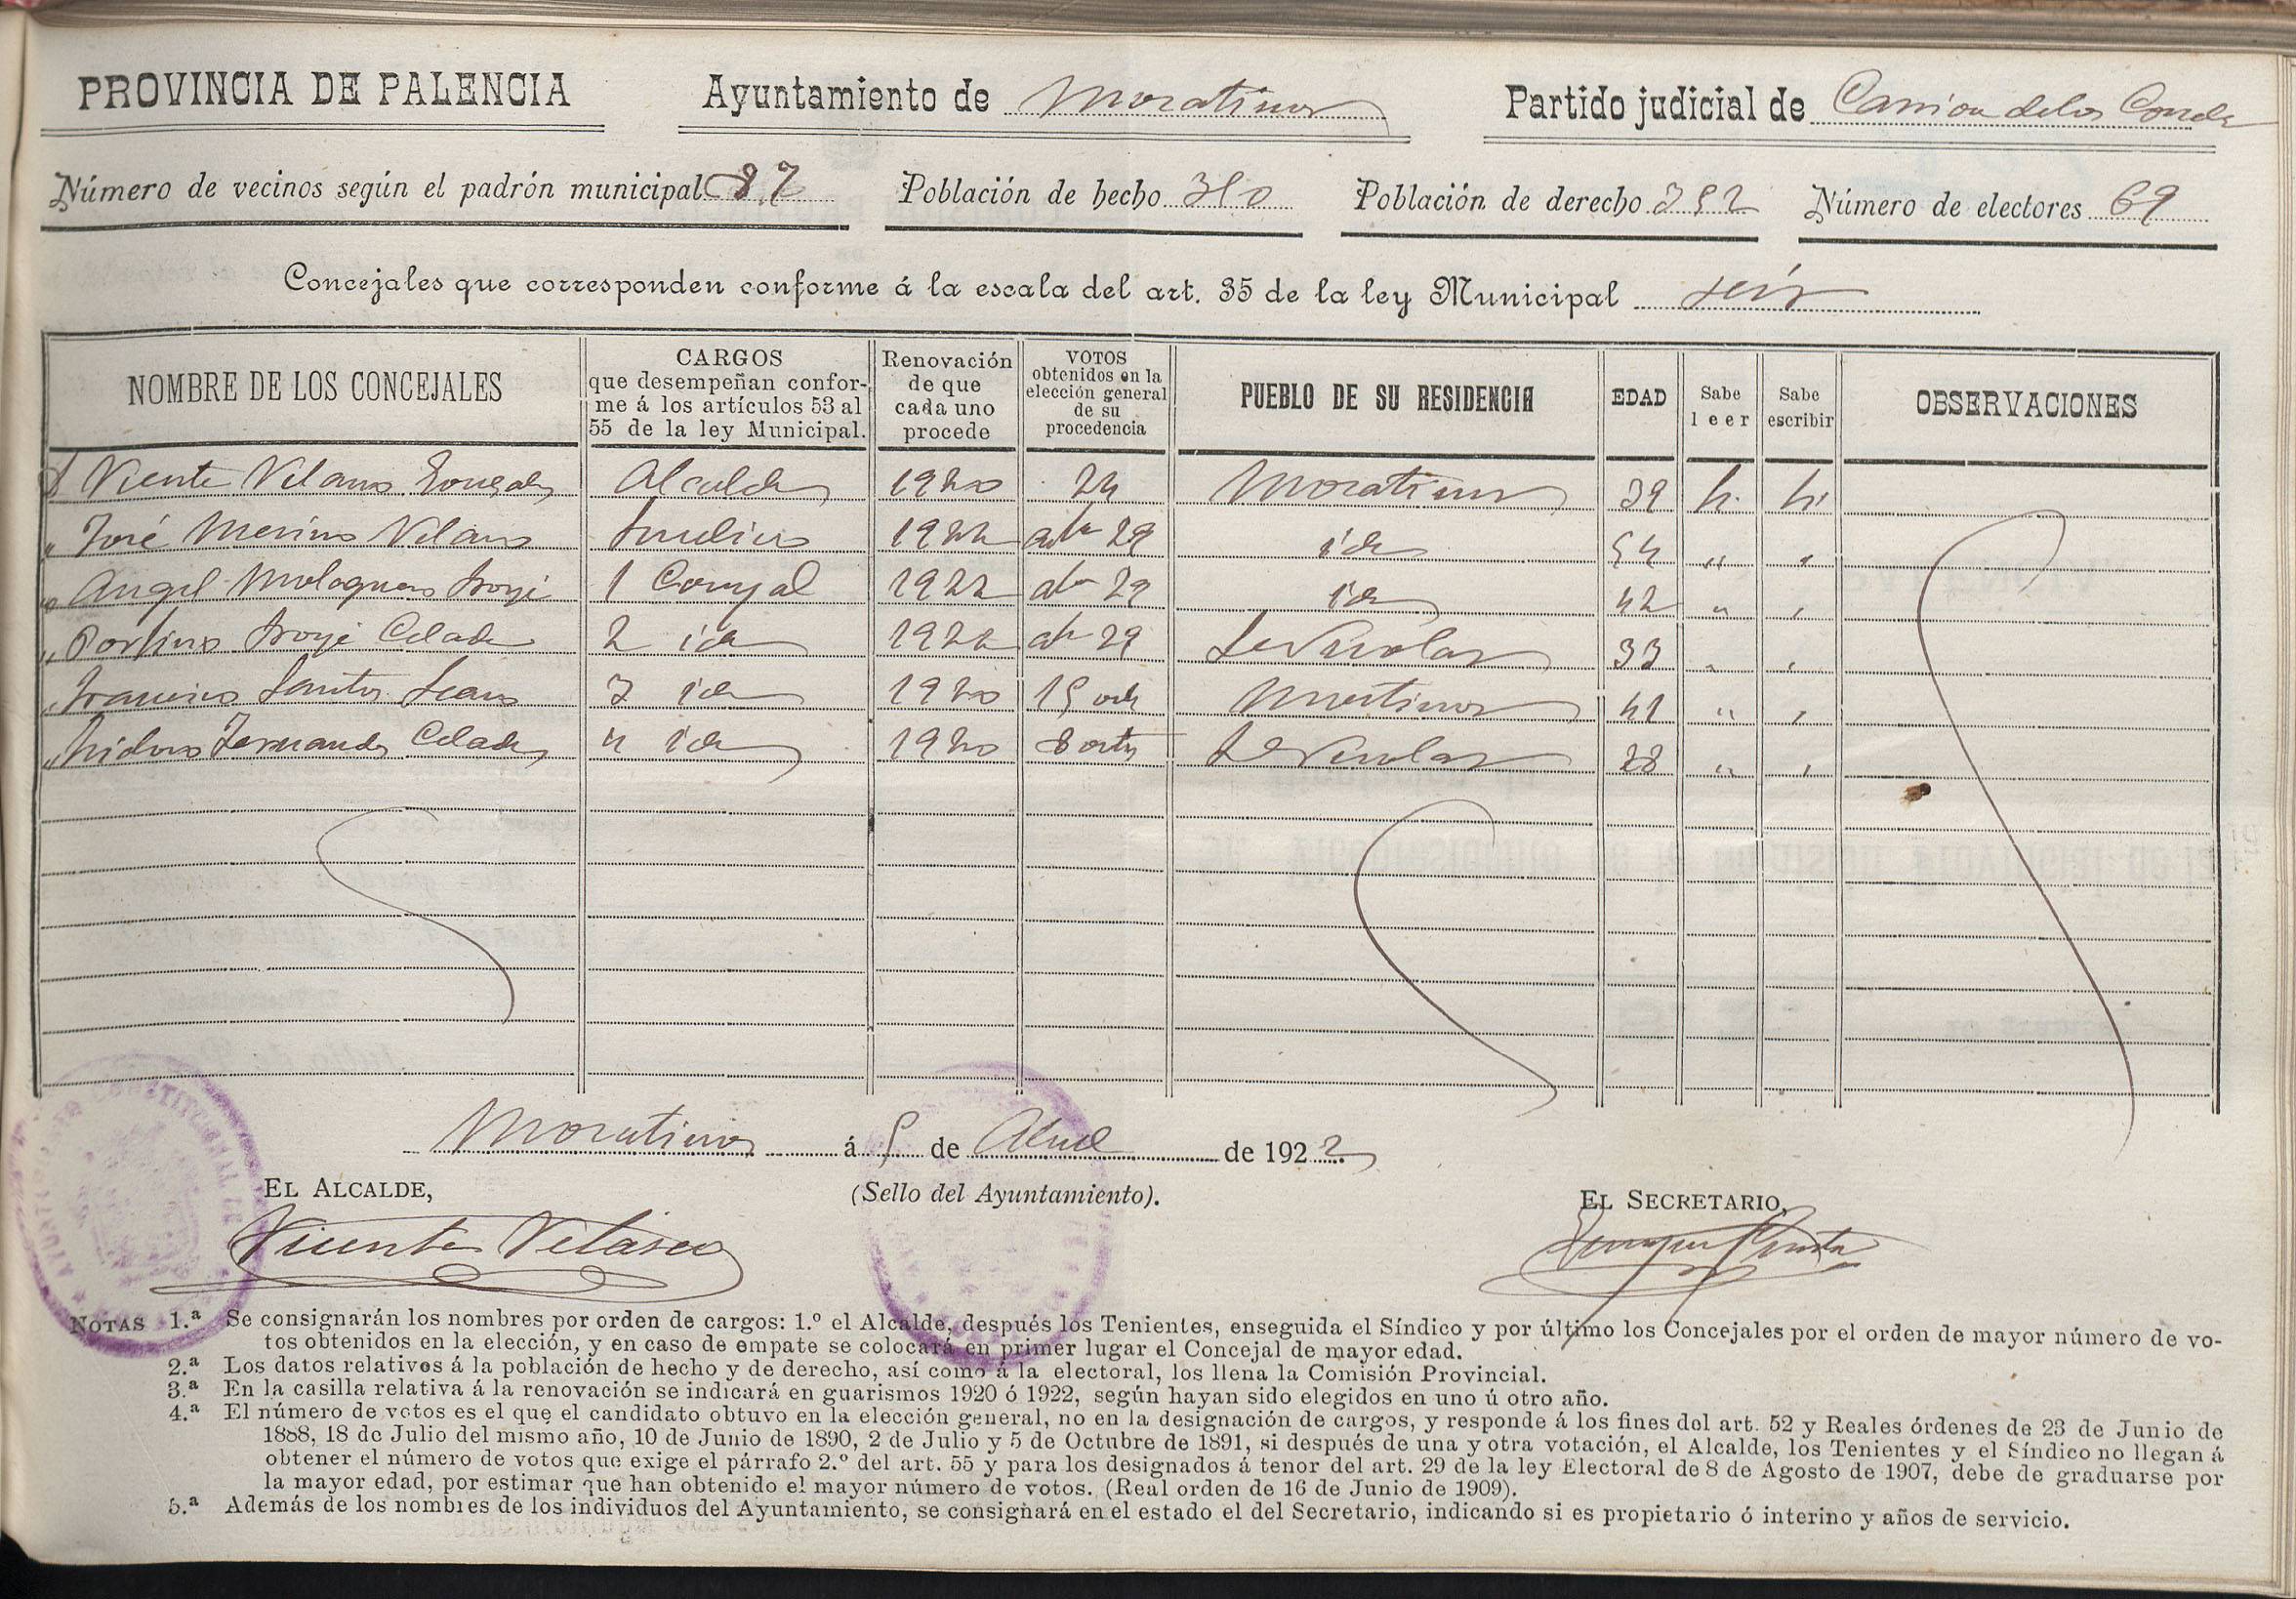 PROVINCIA DE PALENCIA Ayuntamiento de Moratinos Partido judicial de Carrion de los Condes
Número de vecinos según el padrón municipal 87 Población de hecho 350 Población de derecho 352 Número de electores 69
Concejales que corresponden conforme á la escala del art. 35 de la ley Municipal seis
NOMBRE DE LOS CONCEJALES CARGOS que desempeñan conforme á los artículos 53 al 55 de la ley Municipal. Renovación de que cada uno procede VOTOS obtenidos en la elección general de su procedencia PUEBLO DE SU RESIDENCIA EDAD Sabe leer Sabe escribir OBSERVACIONES
Vicente Velasco Alcalde 1920 24 Moratinos 39 si si
" José Merino Velasco Sindico 1922 art 29 id 54 " "
" Angel Borje 1 Concejal 1922 art 29 id 42 " "
" Porfirio Borje Celada 2 id 1922 art 29 33 " "
" Francisco Santos 3 id 1920 15 Moratinos 41 " "
" Isidoro Fernandez Celada 4 id 1920 8 38 " "
Moratinos á 5 de Abril de 1922
EL ALCALDE, (Sello del Ayuntamiento). EL SECRETARIO,
Vicente Velasco
NOTAS 1.ª Se consignarán los nombres por orden de cargos: 1.º el Alcalde, después los Tenientes, enseguida el Síndico y por último los Concejales por el orden de mayor número de vo-
tos obtenidos en la elección, y en caso de empate se colocará en primer lugar el Concejal de mayor edad.
2.ª Los datos relativos á la población de hecho y de derecho, así como á la electoral, los llena la Comisión Provincial.
3.ª En la casilla relativa á la renovación se indicará en guarismos 1920 ó 1922, según hayan sido elegidos en uno ú otro año.
4.ª El número de votos es el que el candidato obtuvo en la elección general, no en la designación de cargos, y responde á los fines del art. 52 y Reales órdenes de 23 de Junio de
1888, 18 de Julio del mismo año, 10 de Junio de 1890, 2 de Julio y 5 de Octubre de 1891, si después de una y otra votación, el Alcalde, los Tenientes y el Síndico no llegan á
obtener el número de votos que exige el párrafo 2.º del art. 55 y para los designados á tenor del art. 29 de la ley Electoral de 8 de Agosto de 1907, debe de graduarse por
la mayor edad, por estimar que han obtenido el mayor número de votos. (Real orden de 16 de Junio de 1909).
5.ª Además de los nombres de los individuos del Ayuntamiento, se consignará en el estado el del Secretario, indicando si es propietario ó interino y años de servicio.